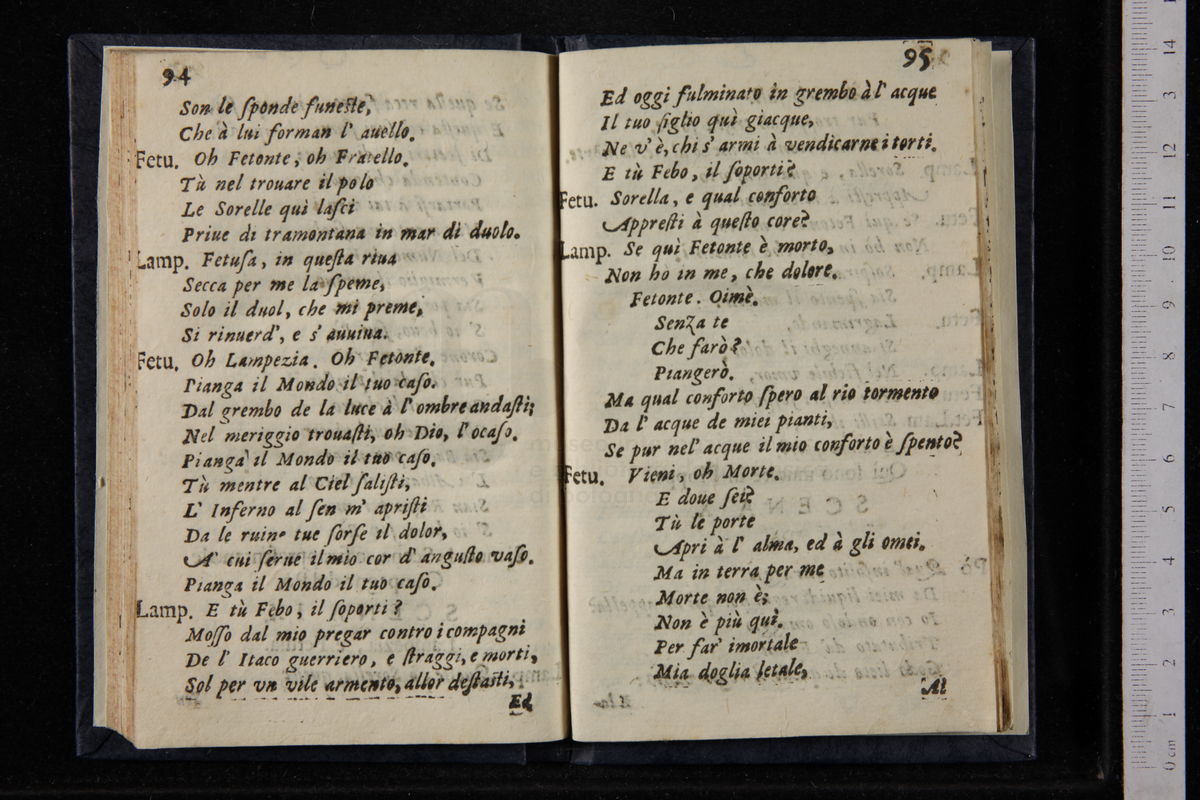 94
Son le ſponde funeſte,
Che à lui forman l' auello.
Fetu. Oh Fetonte, oh Fratello.
Tù nel trouare il polo
Le Sorelle quì laſci
Priue di tramontana in mar di duolo.
Lamp. Fetuſa, in queſta riua
Secca per me la ſpeme,
Solo il duol, che mi preme,
Si rinuerd', e s' auuiua.
Fetu. Oh Lampezia. Oh Fetonte.
Pianga il Mondo il tuo caſo.
Dal grembo de la luce à l' ombre andaſti;
Nel meriggio trouaſti, oh Dio, l' ocaſo.
Pianga il Mondo il tuo caſo.
Tù mentre al Ciel ſaliſti,
L' Inferno al ſen m' apriſti
Da le ruine tue ſorſe il dolor,
A' cui ſerue il mio cor d' anguſto vaſo.
Pianga il Mondo il tuo caſo.
Lamp. E tù Febo, il ſoporti?
Moſſo dal mio pregar contro i compagni
De l' Itaco guerriero, e ſtraggi, e morti,
Sol per vn vile armento, allor deſtaſti,
Ed
95
Ed oggi fulminato in grembo à l' acque
Il tuo figlio quì giacque,
Ne v' è, chi s' armi à vendicarne i torti.
E tù Febo, il ſoporti?
Fetu. Sorella, e qual conforto
Appreſti à queſto core?
Lamp. Se quì Fetonte è morto,
Non ho in me, che dolore.
Fetonte. Oimè.
Senza te
Che farò?
Piangerò.
Ma qual conforto ſpero al rio tormento
Da l' acque de miei pianti,
Se pur nel' acque il mio conforto è ſpento?
Fetu. Vieni, oh Morte.
E doue ſei?
Tù le porte
Apri à l' alma, ed à gli omei.
Ma in terra per me
Morte non è;
Non è più quì.
Per far' imortale
Mia doglia letale,
Al